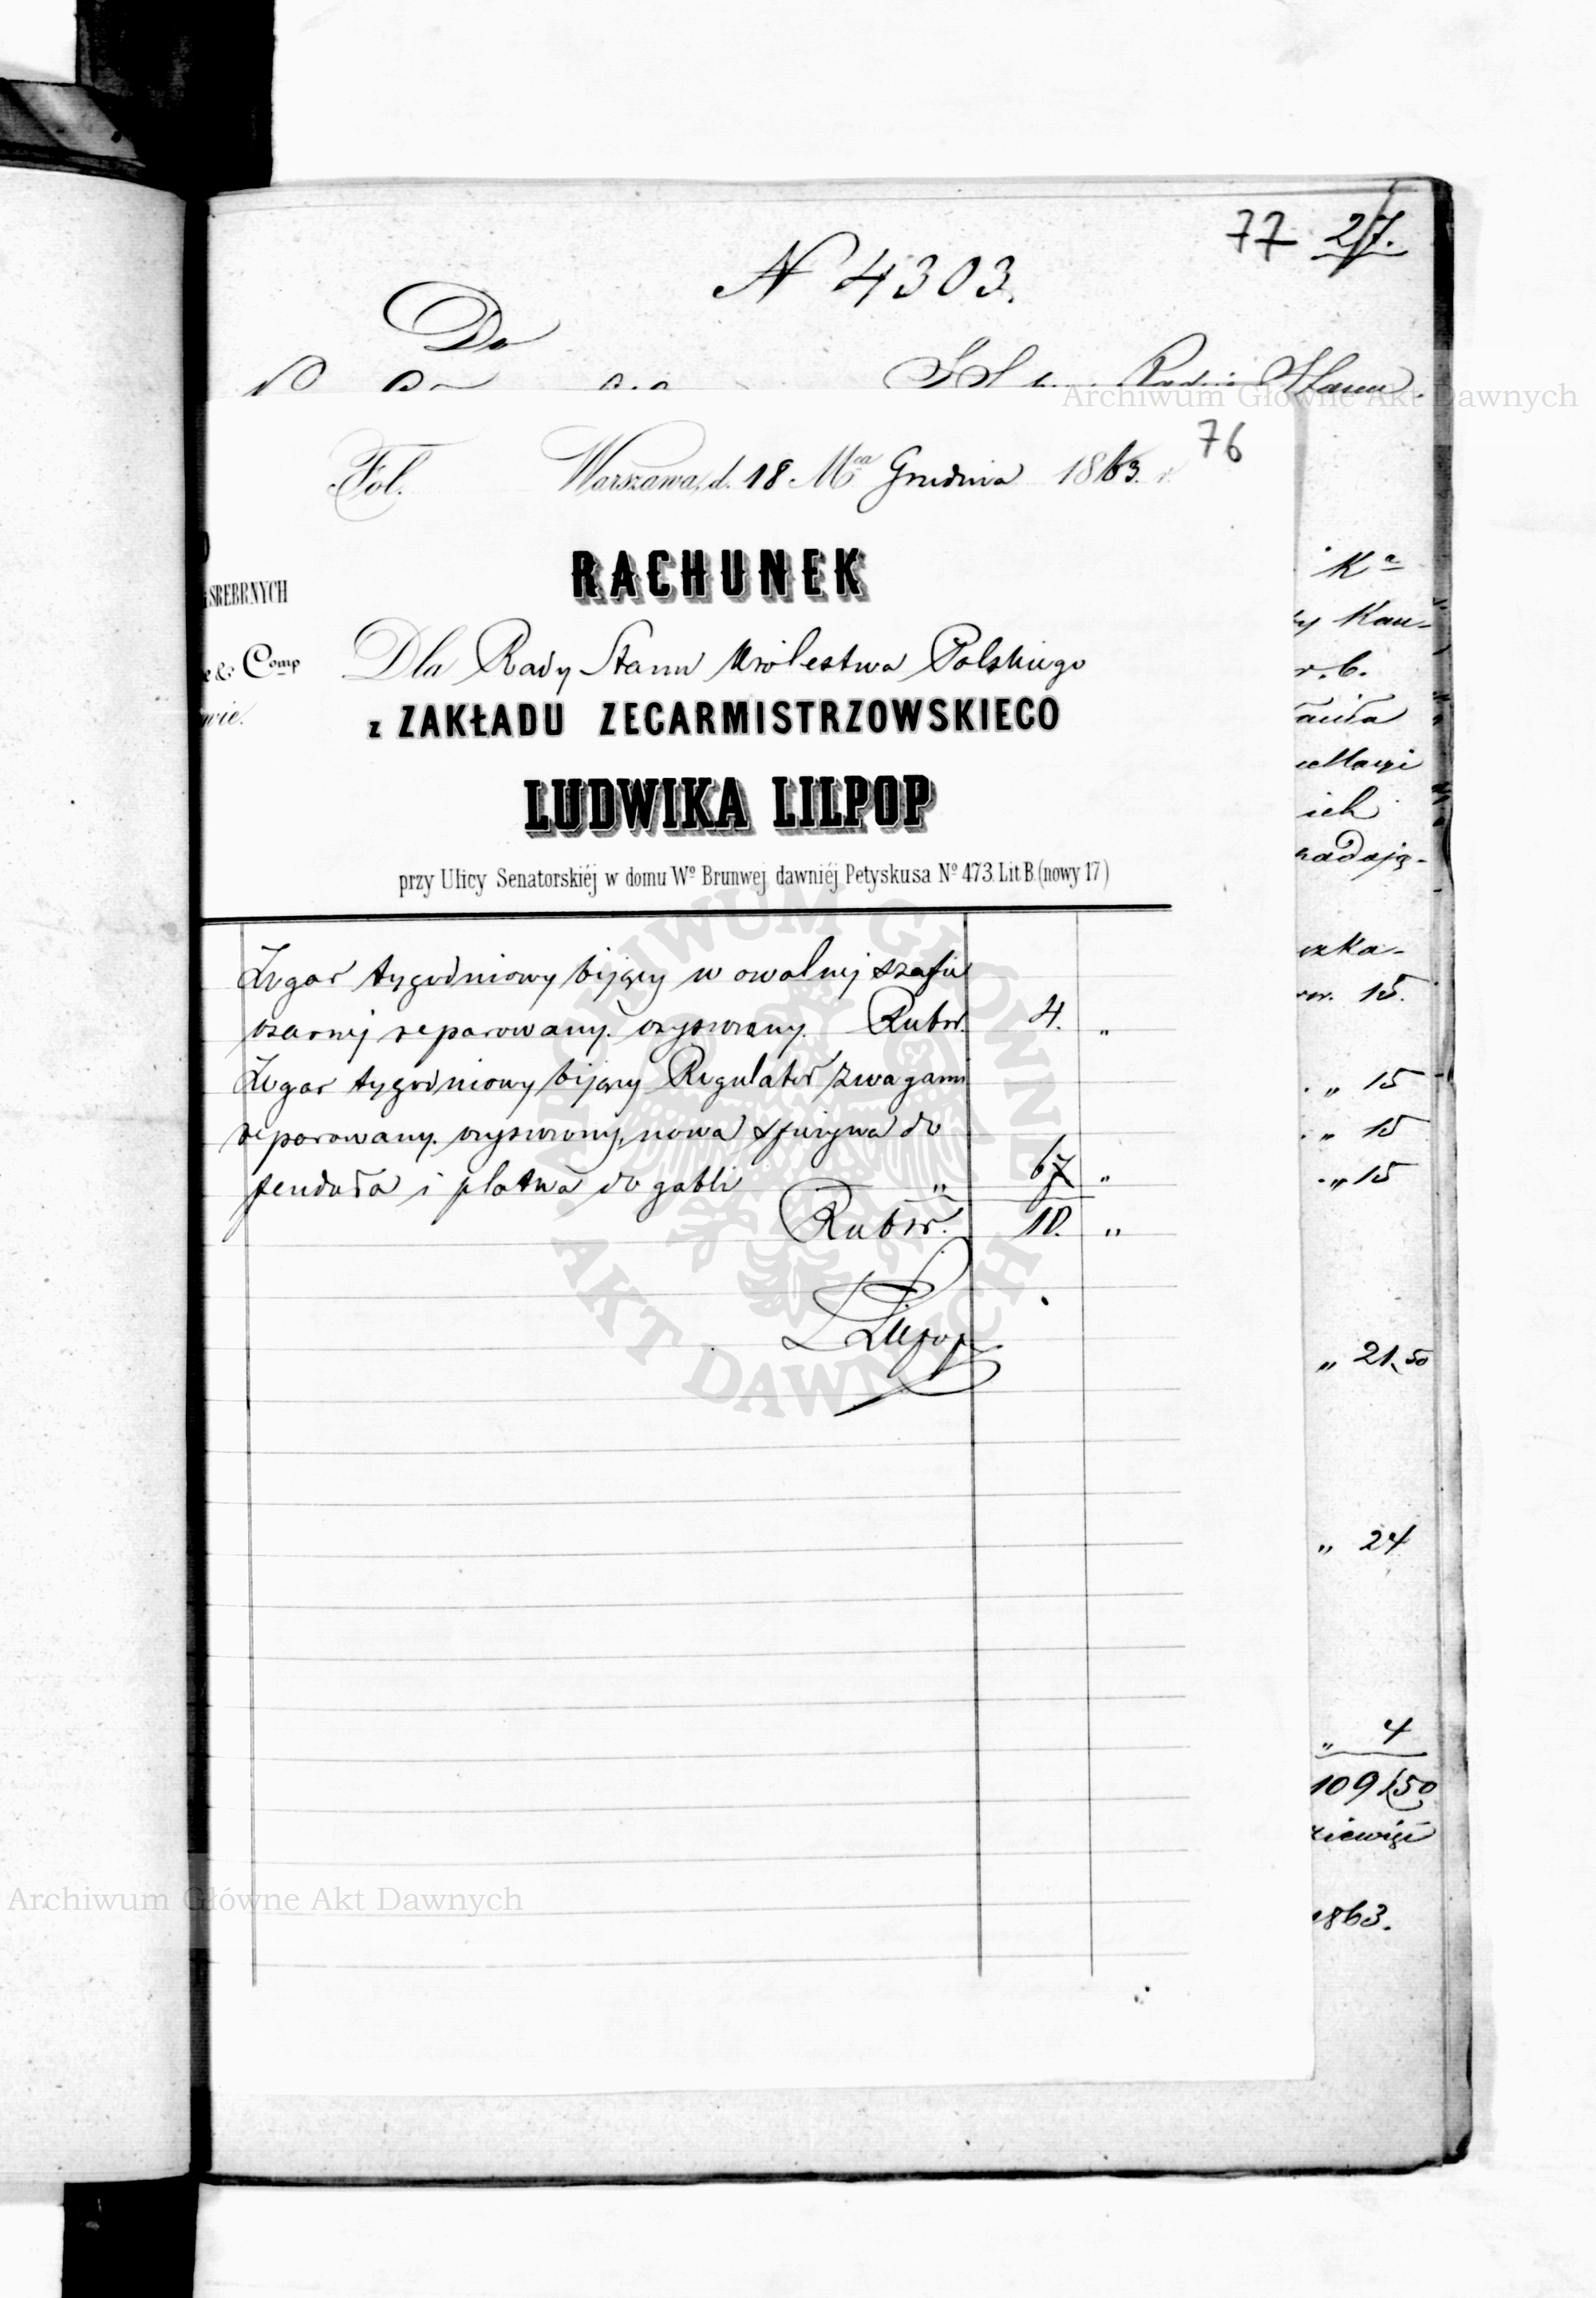 77 27.
N 4303.
Do
Stanu
Archiwum Główne Akt Dawnych
76
Fol. Warszawa, d. 18 Mca Grudnia 1863. r.
RACHUNEK
SREBRNYCH
Dla Rady Stanu Królestwa Polskiego
& Comp
z ZAKŁADU ZEGARMISTRZOWSKIEGO
wie.
LUDWIKA LILPOP
przy Ulicy Senatorskiéj w domu Wº Brunwej dawniéj Petyskusa Nº 473. Lit B. (nowy 17)
Zegar tygodniowy bijący w owalnej szafie
czarnej reparowany. czyszczony. Rubsr. 4. „
Zegar tygodniowy bijący Regulator z wagami
reparowany. czyszczony, nowa sprężyna do
penduła i płatwa do gabli „ 6 „
Rubsr. 10. „
L Lilpop
Kª
ty Kan-
r. b.
ich
wadają-
sr. 15.
„ 15
„ 15
„ 15
„ 21,50
„ 24
„ 4
109,50
1863.
ARCHIWUM GŁÓWNE
AKT DAWNYCH
Archiwum Główne Akt Dawnych